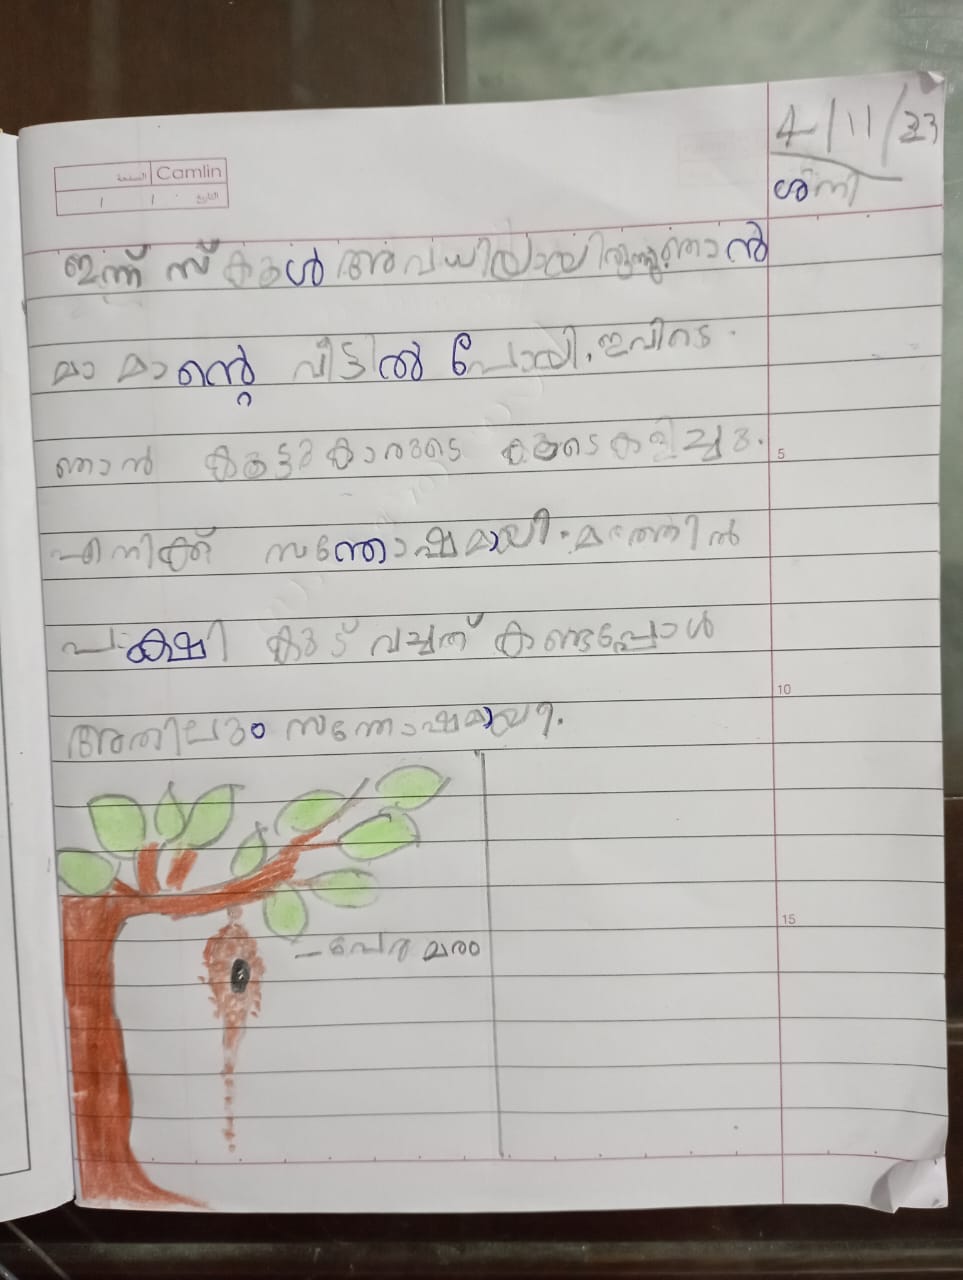 4/11/23
ശനി
Camlin
ഇന്ന് സ്കൂൾ അവധിയായിരുന്നു ഞാൻ
മാമാന്റെ വീട്ടിൽ പോയി. ഇവിടെ
ഞാൻ കൂട്ടുകാരുടെ കൂടെ കളിച്ചു.
എനിക്ക് സന്തോഷമായി. മരത്തിൽ
പക്ഷി കൂട് വച്ചത് കണ്ടപ്പോൾ
അതിലും സന്തോഷമായി.
പേര മരം
5
10
15